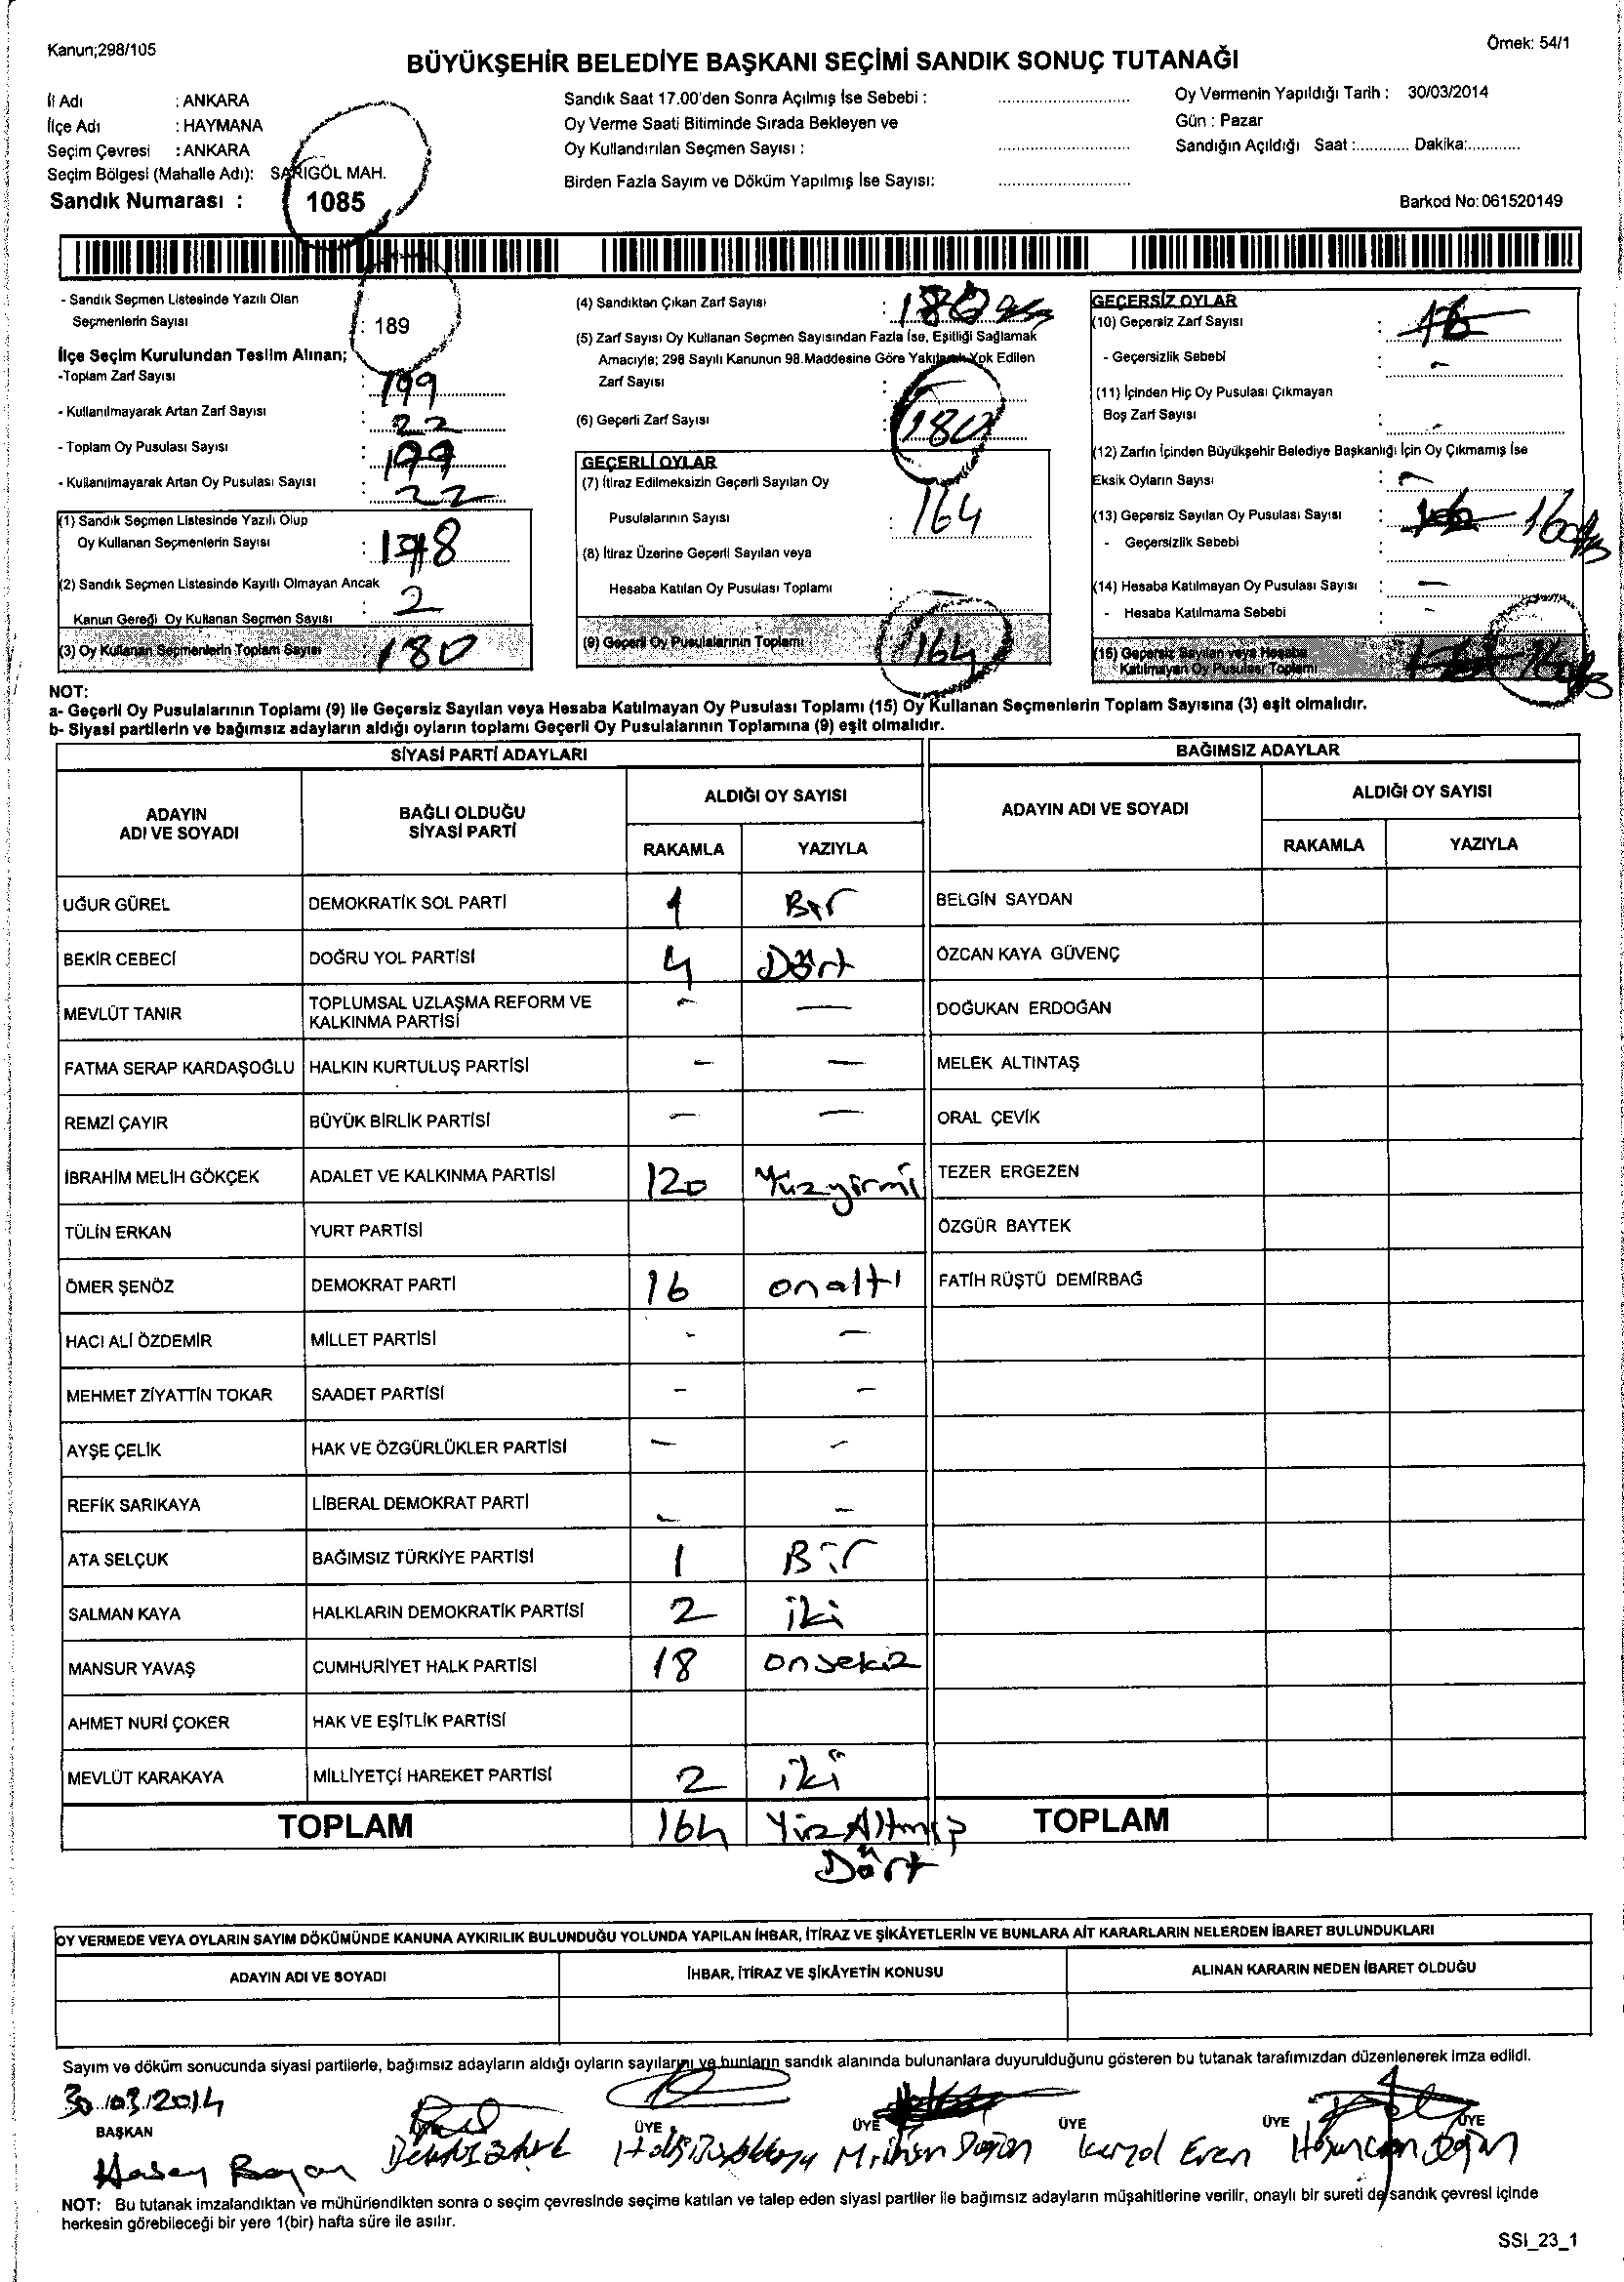 Kanun;298/105
Örnek: 54/1
BÜYÜKŞEHİR BELEDİYE BAŞKANI SEÇİMİ SANDIK SONUÇ TUTANAĞI
İl Adı : ANKARA
İlçe Adı : HAYMANA
Seçim Çevresi : ANKARA
Seçim Bölgesi (Mahalle Adı): SARIGÖL MAH.
Sandık Numarası : 1085
Sandık Saat 17.00'den Sonra Açılmış İse Sebebi :
Oy Verme Saati Bitiminde Sırada Bekleyen ve
Oy Kullandırılan Seçmen Sayısı :
Birden Fazla Sayım ve Döküm Yapılmış İse Sayısı:
Oy Vermenin Yapıldığı Tarih : 30/03/2014
Gün : Pazar
Sandığın Açıldığı Saat :............ Dakika:............
Barkod No: 061520149
- Sandık Seçmen Listesinde Yazılı Olan
Seçmenlerin Sayısı : 189
İlçe Seçim Kurulundan Teslim Alınan;
-Toplam Zarf Sayısı : 199
- Kullanılmayarak Artan Zarf Sayısı : 22
- Toplam Oy Pusulası Sayısı : 199
- Kullanılmayarak Artan Oy Pusulası Sayısı : 22
(1) Sandık Seçmen Listesinde Yazılı Olup
Oy Kullanan Seçmenlerin Sayısı : 178
(2) Sandık Seçmen Listesinde Kayıtlı Olmayan Ancak
Kanun Gereği Oy Kullanan Seçmen Sayısı : 2
(3) Oy Kullanan Seçmenlerin Toplam Sayısı 180
(4) Sandıktan Çıkan Zarf Sayısı : 180
(5) Zarf Sayısı Oy Kullanan Seçmen Sayısından Fazla İse, Eşitliği Sağlamak
Amacıyla; 298 Sayılı Kanunun 98.Maddesine Göre Yakılarak Yok Edilen
Zarf Sayısı : -
(6) Geçerli Zarf Sayısı : 180
GEÇERLİ OYLAR
(7) İtiraz Edilmeksizin Geçerli Sayılan Oy
Pusulalarının Sayısı : 164
(8) İtiraz Üzerine Geçerli Sayılan veya
Hesaba Katılan Oy Pusulası Toplamı :
(9) Geçerli Oy Pusulalarının Toplamı 164
GEÇERSİZ OYLAR
(10) Geçersiz Zarf Sayısı : 16
- Geçersizlik Sebebi -
(11) İçinden Hiç Oy Pusulası Çıkmayan
Boş Zarf Sayısı : -
(12) Zarfın İçinden Büyükşehir Belediye Başkanlığı İçin Oy Çıkmamış İse
Eksik Oyların Sayısı : -
(13) Geçersiz Sayılan Oy Pusulası Sayısı : 16 16
- Geçersizlik Sebebi :
(14) Hesaba Katılmayan Oy Pusulası Sayısı : -
- Hesaba Katılmama Sebebi : -
(15) Geçersiz Sayılan veya Hesaba
Katılmayan Oy Pusulası Toplamı 16
NOT:
a- Geçerli Oy Pusulalarının Toplamı (9) ile Geçersiz Sayılan veya Hesaba Katılmayan Oy Pusulası Toplamı (15) Oy Kullanan Seçmenlerin Toplam Sayısına (3) eşit olmalıdır.
b- Siyasi partilerin ve bağımsız adayların aldığı oyların toplamı Geçerli Oy Pusulalarının Toplamına (9) eşit olmalıdır.
SİYASİ PARTİ ADAYLARI BAĞIMSIZ ADAYLAR
ADAYIN
ADI VE SOYADI
BAĞLI OLDUĞU
SİYASİ PARTİ
ALDIĞI OY SAYISI
RAKAMLA YAZIYLA
ADAYIN ADI VE SOYADI
ALDIĞI OY SAYISI
RAKAMLA YAZIYLA
UĞUR GÜREL DEMOKRATİK SOL PARTİ 1 Bir BELGİN SAYDAN
BEKİR CEBECİ DOĞRU YOL PARTİSİ 4 Dört ÖZCAN KAYA GÜVENÇ
MEVLÜT TANIR TOPLUMSAL UZLAŞMA REFORM VE KALKINMA PARTİSİ - - DOĞUKAN ERDOĞAN
FATMA SERAP KARDAŞOĞLU HALKIN KURTULUŞ PARTİSİ - - MELEK ALTINTAŞ
REMZİ ÇAYIR BÜYÜK BİRLİK PARTİSİ - - ORAL ÇEVİK
İBRAHİM MELİH GÖKÇEK ADALET VE KALKINMA PARTİSİ 120 Yüzyirmi TEZER ERGEZEN
TÜLİN ERKAN YURT PARTİSİ ÖZGÜR BAYTEK
ÖMER ŞENÖZ DEMOKRAT PARTİ 16 onaltı FATİH RÜŞTÜ DEMİRBAĞ
HACI ALİ ÖZDEMİR MİLLET PARTİSİ - -
MEHMET ZİYATTİN TOKAR SAADET PARTİSİ - -
AYŞE ÇELİK HAK VE ÖZGÜRLÜKLER PARTİSİ - -
REFİK SARIKAYA LİBERAL DEMOKRAT PARTİ - -
ATA SELÇUK BAĞIMSIZ TÜRKİYE PARTİSİ 1 Bir
SALMAN KAYA HALKLARIN DEMOKRATİK PARTİSİ 2 iki
MANSUR YAVAŞ CUMHURİYET HALK PARTİSİ 18 onsekiz
AHMET NURİ ÇOKER HAK VE EŞİTLİK PARTİSİ
MEVLÜT KARAKAYA MİLLİYETÇİ HAREKET PARTİSİ 2 iki
TOPLAM 164 Yüz Altmış TOPLAM
Dört
OY VERMEDE VEYA OYLARIN SAYIM DÖKÜMÜNDE KANUNA AYKIRILIK BULUNDUĞU YOLUNDA YAPILAN İHBAR, İTİRAZ VE ŞİKÂYETLERİN VE BUNLARA AİT KARARLARIN NELERDEN İBARET BULUNDUKLARI
ADAYIN ADI VE SOYADI İHBAR, İTİRAZ VE ŞİKÂYETİN KONUSU ALINAN KARARIN NEDEN İBARET OLDUĞU
Sayım ve döküm sonucunda siyasi partilerle, bağımsız adayların aldığı oyların sayılarını ve bunların sandık alanında bulunanlara duyurulduğunu gösteren bu tutanak tarafımızdan düzenlenerek imza edildi.
30.03.2014
BAŞKAN ÜYE ÜYE ÜYE ÜYE ÜYE
Hasan Doğan Eren
NOT: Bu tutanak imzalandıktan ve mühürlendikten sonra o seçim çevresinde seçime katılan ve talep eden siyasi partiler ile bağımsız adayların müşahitlerine verilir, onaylı bir sureti de sandık çevresi içinde
herkesin görebileceği bir yere 1(bir) hafta süre ile asılır.
SSI_23_1